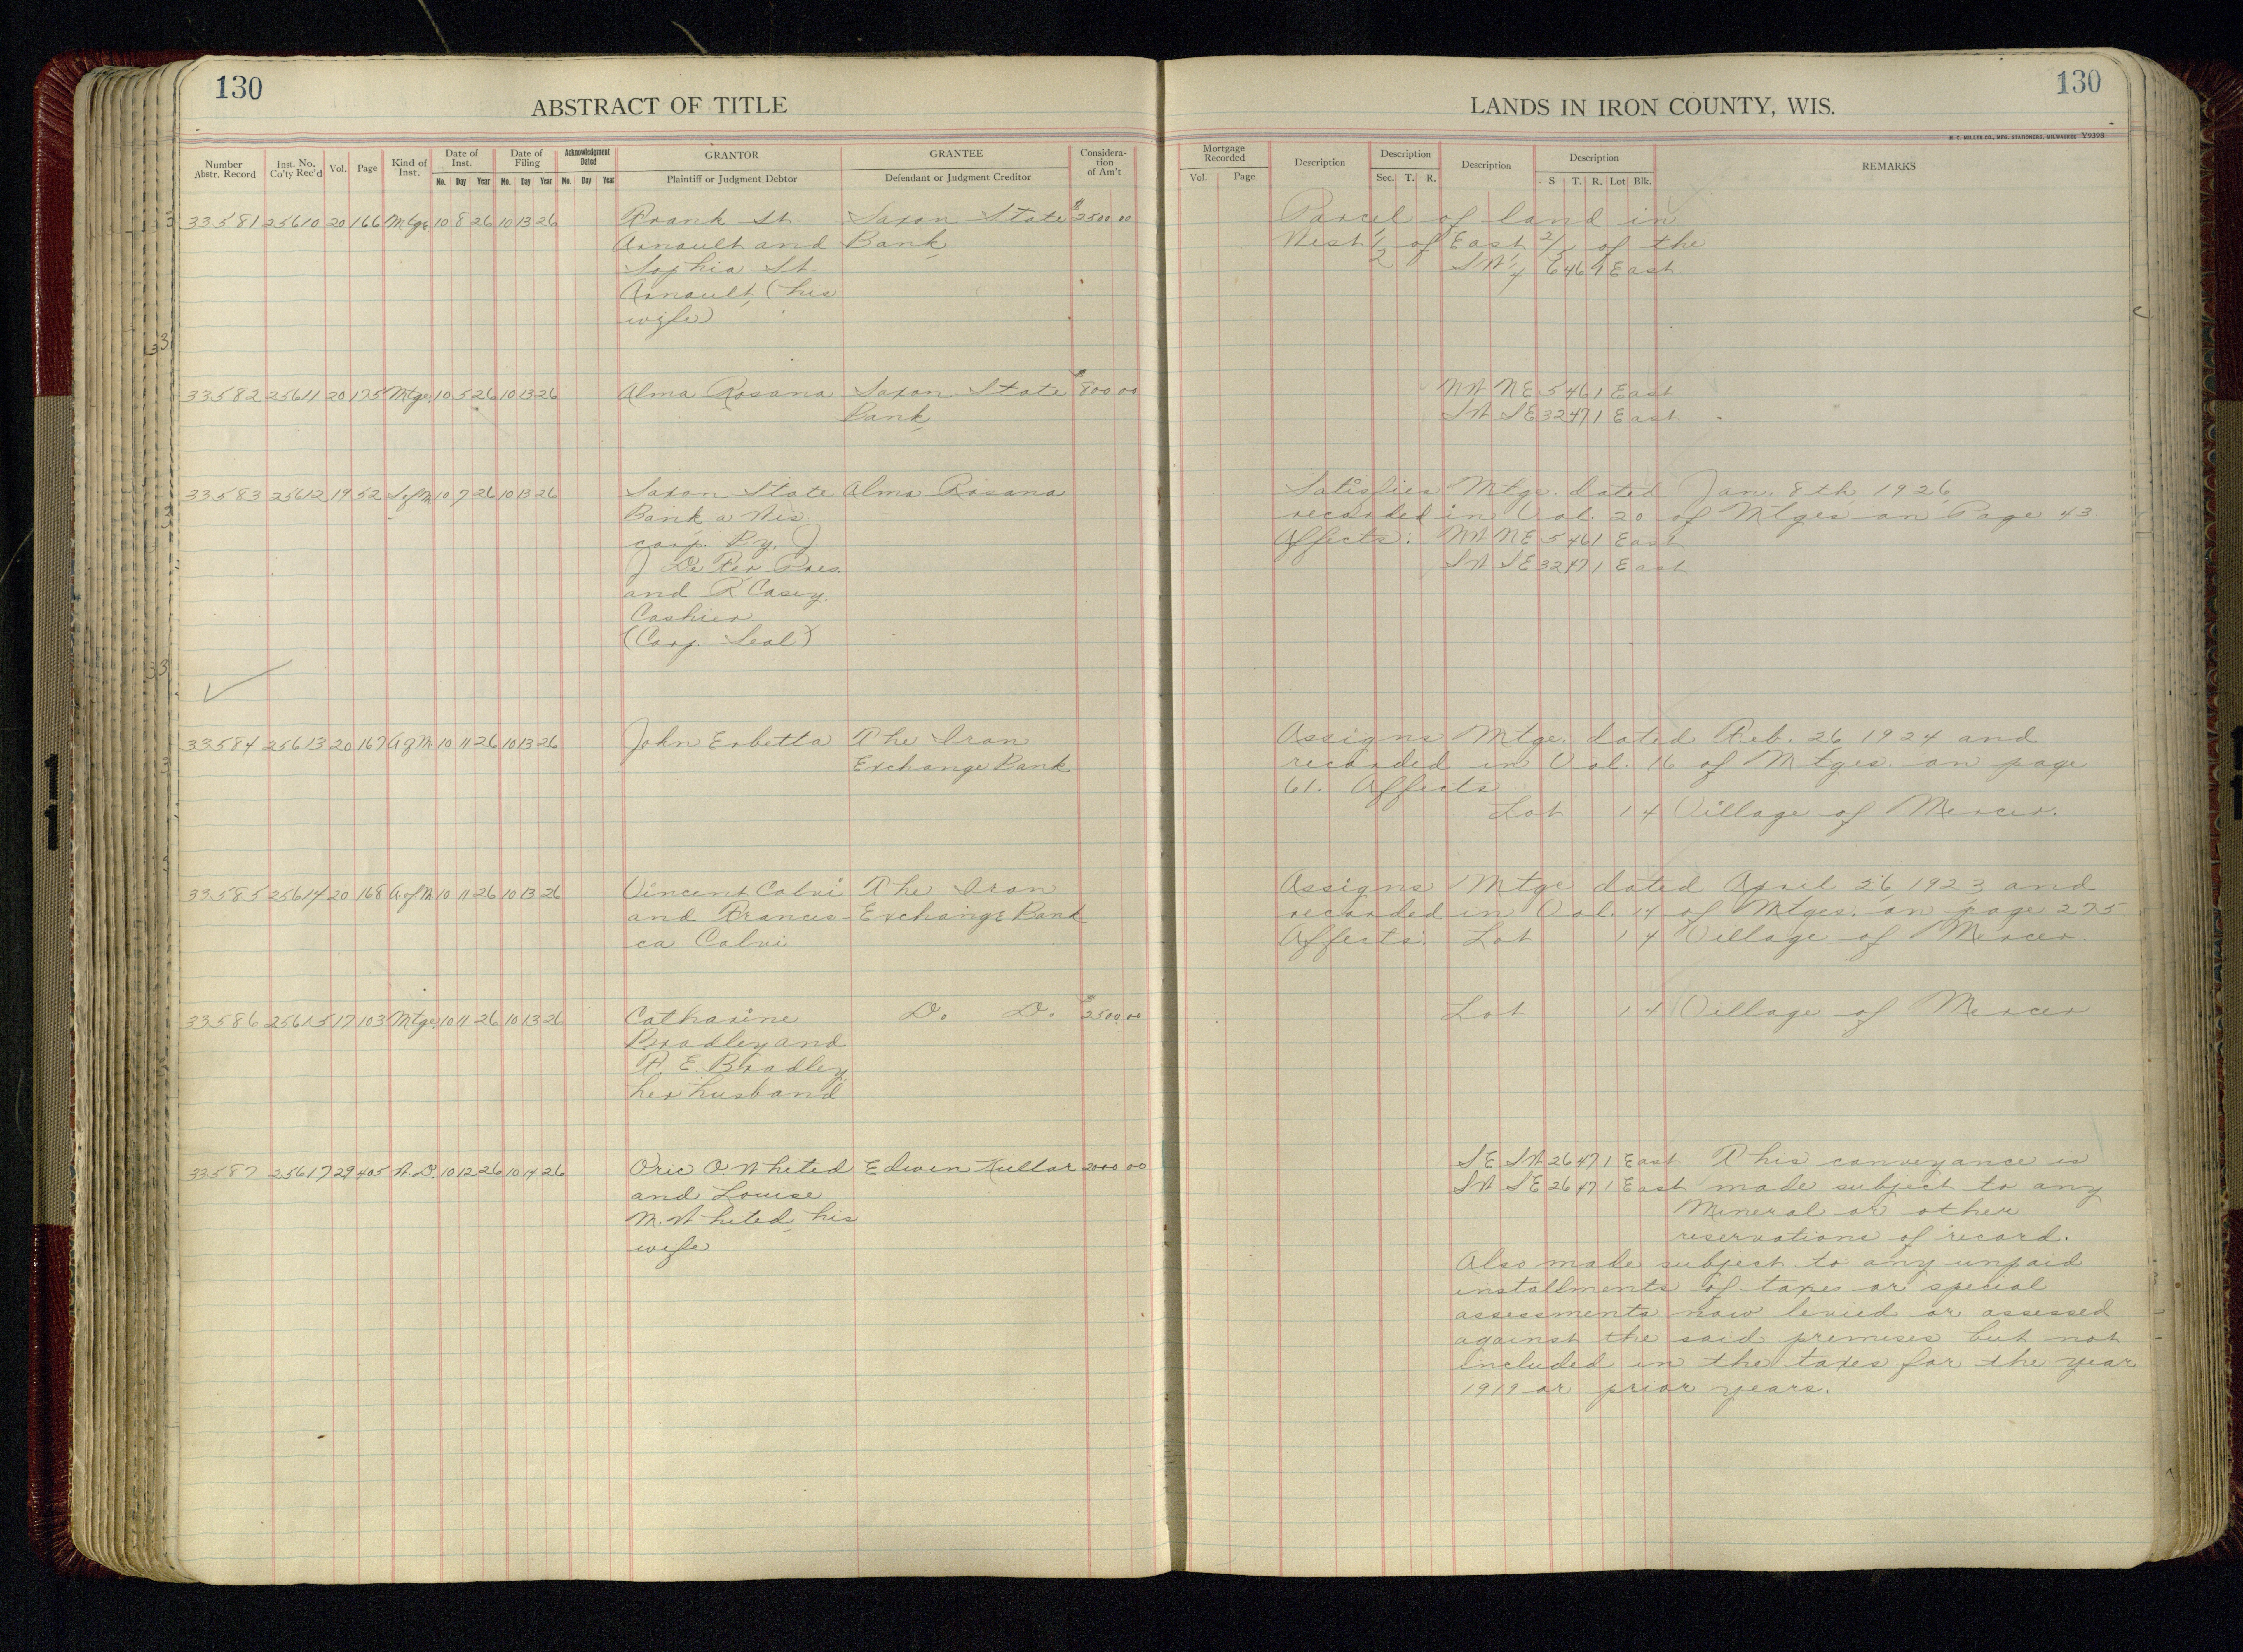 130
ABSTRACT OF TITLE
Number Abstr. Record | Inst. No. Co'ty Rec'd | Vol. | Page | Kind of Inst. | Date of Inst. Mo. Day Year | Date of Filing Mo. Day Year | Acknowledgment Dated Mo. Day Year | GRANTOR Plaintiff or Judgment Debtor | GRANTEE Defendant or Judgment Creditor | Considera-tion of Am't
33581 25610 20 166 Mtge 10 8 26 10 13 26 Frank St. Saxon State $2500.00
Arnault and Bank
Sophia St.
Arnault, (his
wife)
33582 25611 20 175 Mtge. 10 5 26 10 13 26 Alma Rosana Saxon State $800 00
Bank,
33583 25612 19 52 S of M 10 7 26 10 13 26 Saxon State Alma Rosana
Bank a Wis.
corp. By. J.
J. De Rer Pres.
and R Casey.
Cashier
(Corp. Seal)
33584 25613 20 167 A of M 10 11 26 10 13 26 John Erbetta The Iron
Exchange Bank
33585 25614 20 168 A of M 10 11 26 10 13 26 Vincent Calvi The Iron
and Frances- Exchange Bank
ca Calvi
33586 25615 17 103 Mtge. 10 11 26 10 13 26 Catharine D. D. $2500.00
Bradley and
F. E. Bradley,
her husband
33587 25617 29 405 W. D. 10 12 26 10 14 26 Oric O. Whited Edwin Kullar 2000 00
and Louise
M. Whited, his
wife
130
LANDS IN IRON COUNTY, WIS.
H. C. MILLER CO., MFG. STATIONERS, MILWAUKEE Y9398
Mortgage Recorded Vol. Page | Description | Description Sec. T. R. | Description | Description S T. R. Lot Blk. | REMARKS
Parcel of land in
West 1/2 of East 2/3 of the
SW 1/4 6 46 1 East
NW NE 5 46 1 East
SW SE 32 47 1 East
Satisfies Mtge. dated Jan. 8th, 1926,
recorded in Vol. 20 of Mtges on Page 43
Affects: NW NE 5 46 1 East
SW SE 32 47 1 East
Assigns Mtge. dated Feb. 26 1924 and
recorded in Vol. 16 of Mtges. on page
61. Affects
Lot 1 4 Village of Mercer.
Assigns Mtge dated April 26, 1923 and
recorded in Vol. 14 of Mtges. on page 275
Affects: Lot 1 4 Village of Mercer.
Lot 1 4 Village of Mercer
SE SW 26 47 1 East This conveyance is
SW SE 26 47 1 East made subject to any
Mineral or other
reservations of record.
Also made subject to any unpaid
installments of taxes or special
assessments now levied or assessed
against the said premises but not
included in the taxes for the year
1919 or prior years.